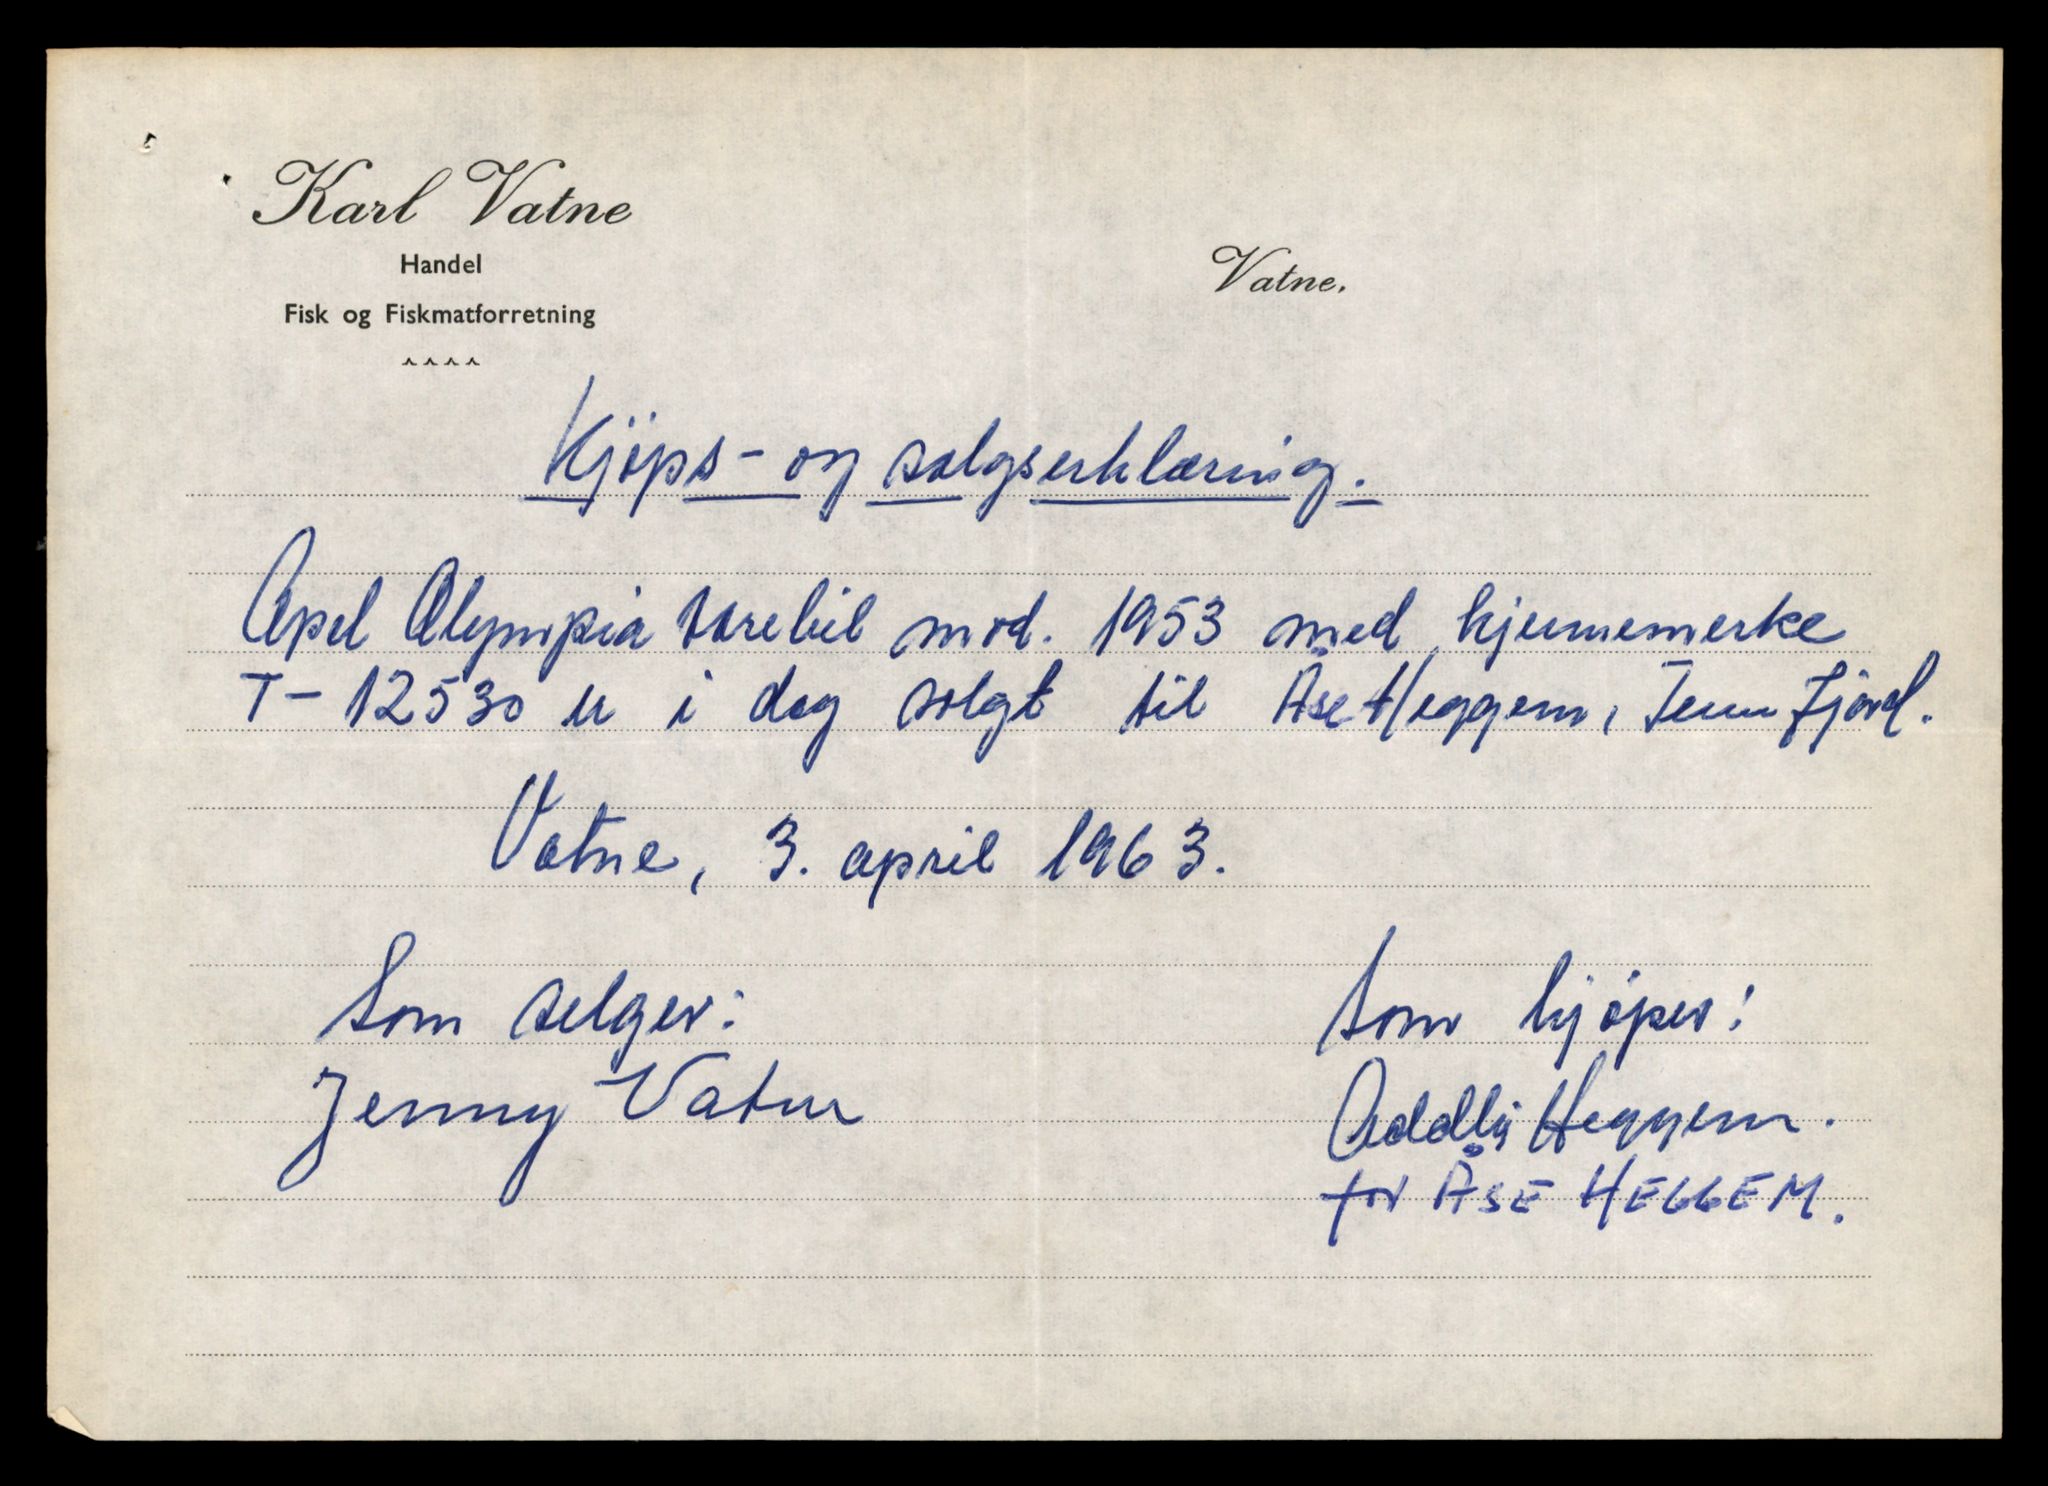 Karl Vatne
Handel
Fisk og Fiskmatforretning
Vatne.
Kjøps- og salgserklæring.
Opel Olympia varebil mod. 1953 med kjennemerke
T-12530 er i dag solgt til Åse Heggem, Tennfjord.
Vatne, 3. april 1963.
Som selger:
Som kjøper:
Jenny Vatne
Oddly Heggem.
for ÅSE HEGGEM.